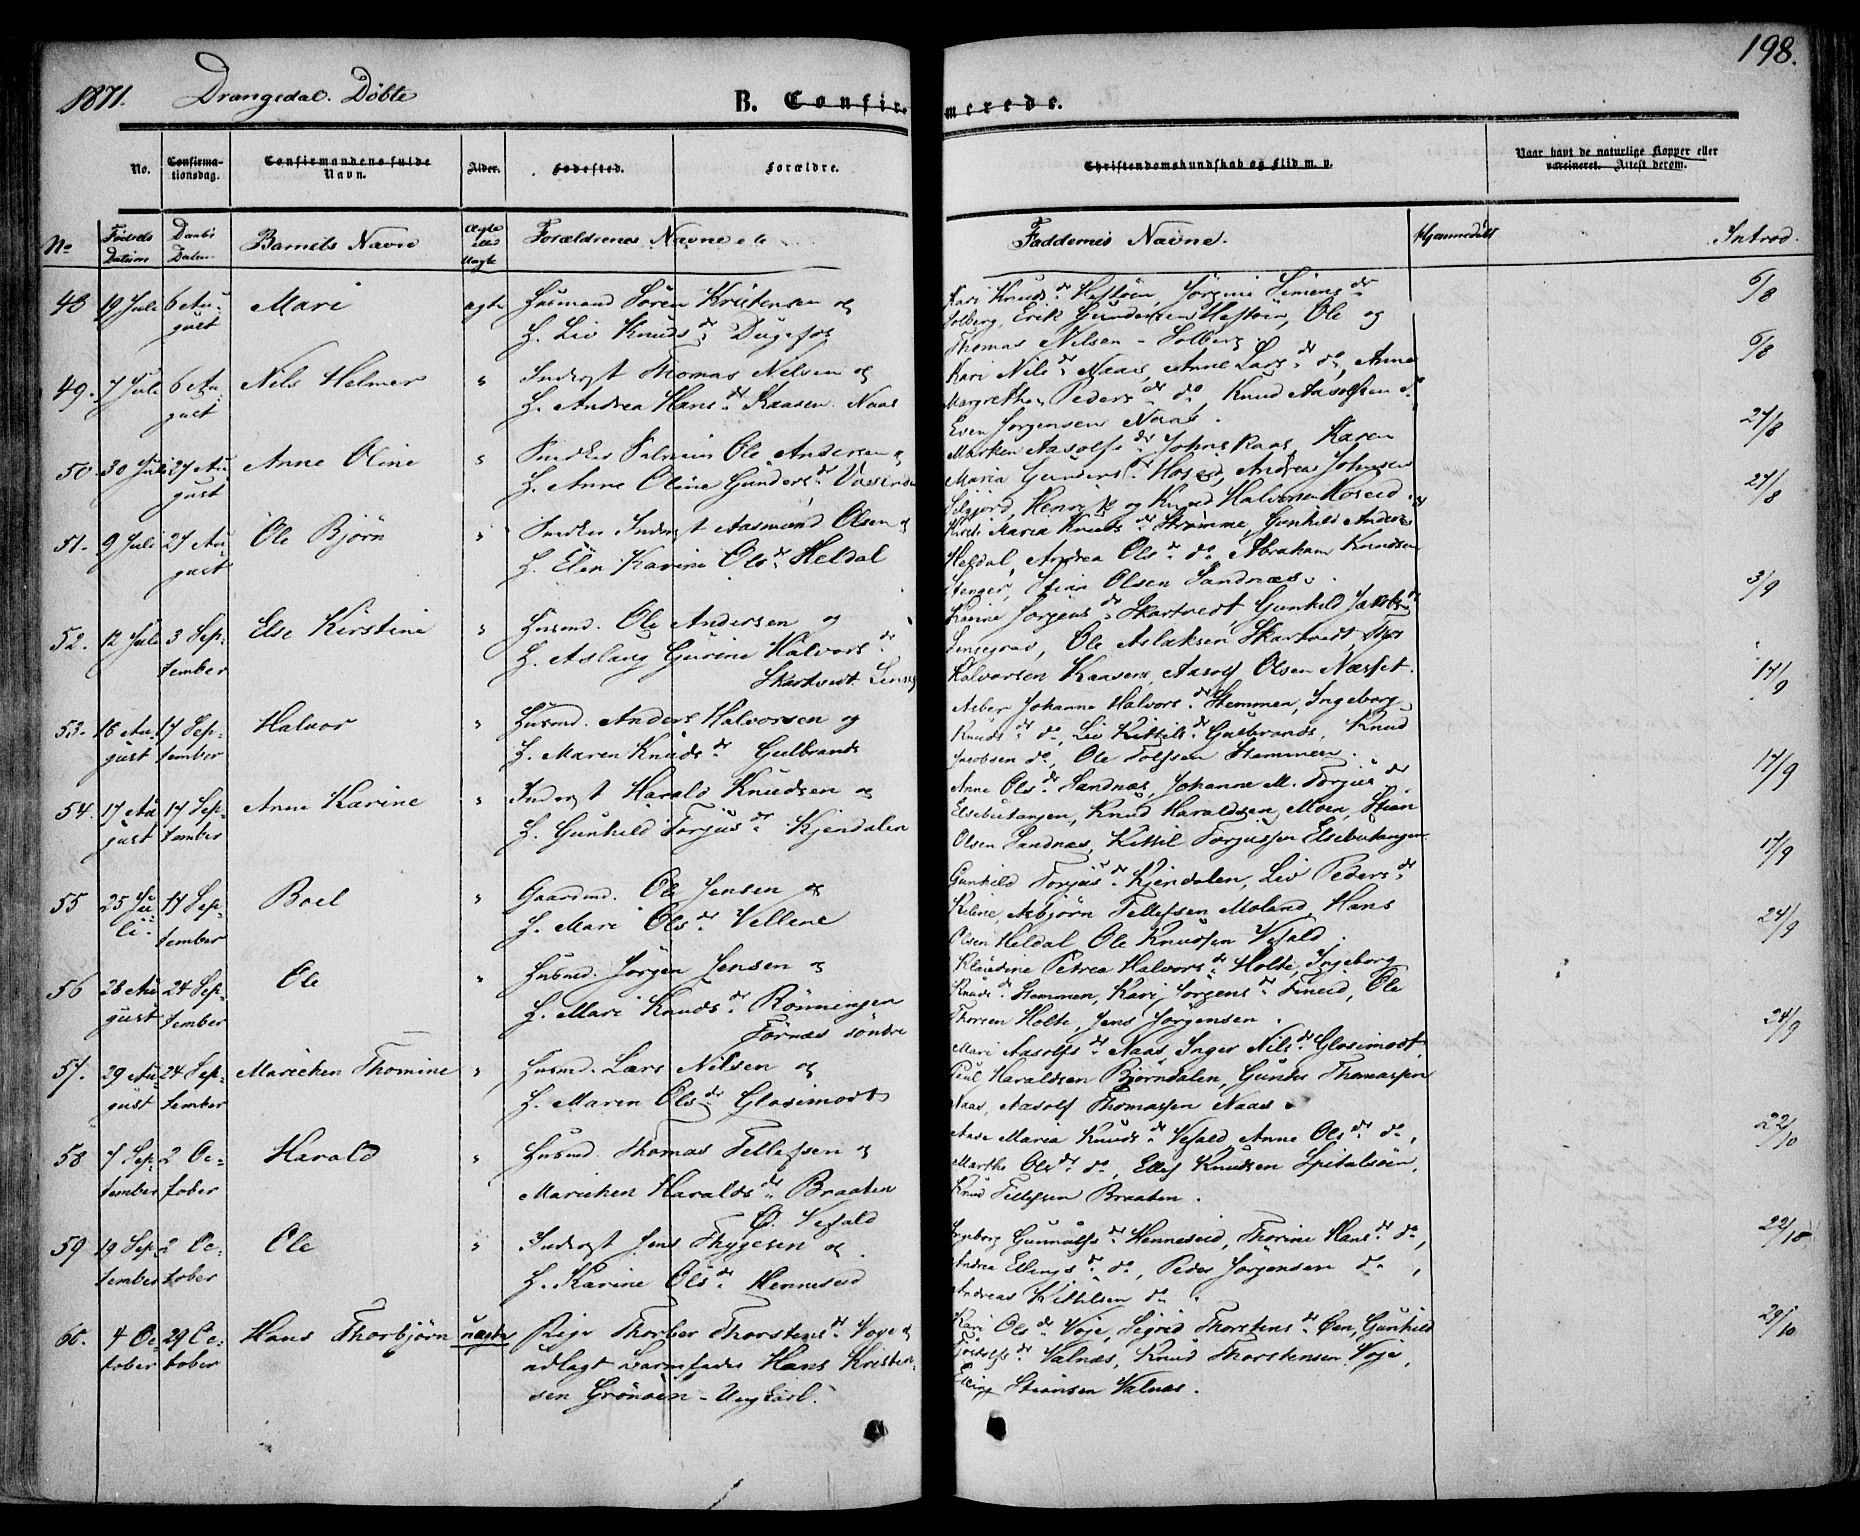 1871. Drangedal. Döbte
B. Confirmerede.
198.
No. Confirmationsdag. Confirmandens fulde Navn. Alder. Bosted. Forældre. Christendomskundskab og Flid m. v. Naar havt de naturlige Kopper eller vaccineret. Attest derom.
No Fødsels Datum Daabs Datum Barnets Navn Ægte eller Uægte Forældrenes Navne Faddernes Navne. Hjemmedøbt Introd.
48 19 Juli 6 August Mari ægte Husmand Sören Kristensen og
H. Liv Knuds dr Dugefos
Kari Knuds dr Heftöen, Jörgine Simens dr
Solberg, Erik Gundersen Heftöen, Ole og
Thomas Nilsen - Solberg.
6/8
49. 7 Juli 6 August Nils Helmer " Inderst Thomas Nilsen og
H. Andrea Hans dr Kaasen. Naas
Kari Nils dr Naas, Anne Lars dr do, Anne
Margrethe Peders dr do, Knud Aasolfsen do
Even Jörgensen Naas.
6/8
50. 30 Juli 27 August Anne Oline " Ole Andersen og
H. Anne Oline Gunders dr
Marken Aasolfs dr Johnskaas, Karen
Maria Gunders dr Hoseid, Andreas Johnsen
Henrik og Knud Halvorsen Hoseid.
27/8
51. 9 Juli 27 August Ole Björn " Inderst Aasmund Olsen og
H. Elen Karine Ols dr Heldal
Maria Knuds dr Strömme, Gunhild Anders
Heldal, Andrea Ols dr do Abraham Knudsen
Stenger, Stian Olsen Sandnæs.
27/8
52. 12 Juli 3 September Else Kirstine " Husmd. Ole Andersen og
H. Aslaug Gurine Halvors dr
Skartvedt
Karine Jörgens dr Skartvedt, Gunhild Jakobs dr
Ole Aslaksen Skartvedt,
Halvorsen Kaasene, Aasolf Olsen Næsset.
3/9
53. 16 August 17 September Halvor " Husmd. Anders Halvorsen og
H. Maren Knuds dr Gulbrands
Johanne Halvors dr Stemmen, Ingeborg
Knuds dr do, Liv Kittils dr Gulbrands, Knud
Jacobsen do, Ole Tolfsen Stemmen.
17/9
54. 17 August 17 September Anne Karine " Inderst Harald Knudsen og
H. Gunhild Torjus dr Kjendalen
Anne Ols dr Sandnæs, Johanne M. Torjus dr
Elsebutangen, Knud Haraldsen Moen, Stian
Olsen Sandnæs, Kittil Torjussen Elsebutangen
17/9
55 25 Juli 17 September Boel " Gaardmd. Ole Jensen og
H. Mari Ols dr Vellene
Gunhild Torjus dr Kjendalen, Liv Peders dr
Kilene, Asbjörn Tellefsen Moland, Hans
Olsen Heldal Ole Knudsen Vefald.
17/9
56 28 August 24 September Ole " Husmd. Jörgen Jensen og
H. Mari Knuds dr Rönningen
Törnæs söndre
Klaudine Petrea Halvors dr Holte, Ingeborg
Knuds dr Stemmen, Kari Jörgens dr Fineid, Ole
Thorsen Holte, Jens Jörgensen.
24/9
57. 29 August 24 September Mariken Thomine " Husmd. Lars Nilsen og
H. Maren Ols dr Glosimodt
Mari Aasolfs dr Naas, Inger Nils dr Glosimodt,
Paul Haraldsen Björndalen, Gunder Thomassen
Naas, Aasolf Thomassen Naas.
24/9
58 7 September 2 October Harald " Husmd. Thomas Tellefsen og
Mariken Haralds dr Braaten
Ø. Vefald
Aase Maria Knuds dr Vefald, Anne Ols dr do,
Marthe Ols dr do, Ellef Knudsen Spitalsöen,
Knud Tellefsen Braaten.
22/10
59 19 September 2 October Ole " Inderst Jens Thygesen og
H. Karine Ols dr Henneseid
Ingeborg Gunnulfs dr Henneseid, Thorine Hans dr do,
Andrea Ellings dr do, Peder Jörgensen do,
Andreas Kittilsen do.
22/10
60. 4 October 29 October Hans Thorbjörn uægte Pige Thorber Thorstens dr Voje og
udlagt Barnefader Hans Kristensen
Grönöen - Ungkarl.
Kari Ols dr Voje, Sigrid Thorstens dr Öen, Gunhild
Valnæs, Knud Thorstensen Voje,
Elling Stiansen Valnæs.
29/10